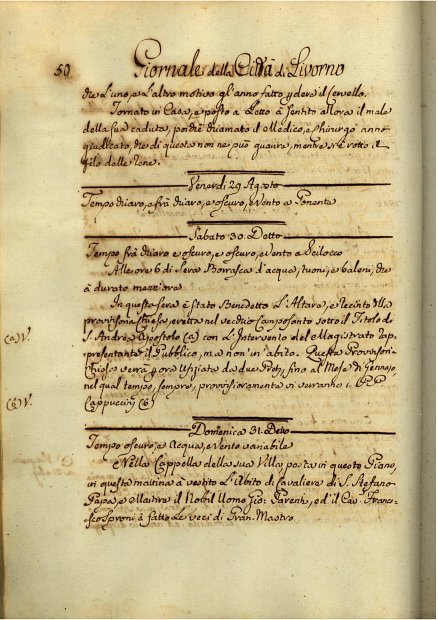 50 Giornale della Città di Livorno
che l'uno, e l'altro motivo gl'anno fatto perdere il cervello.
Tornato in Casa, e posto a Letto à sentito allora il male
della sua caduta, pondè chiamato il Medico, e Chirurgo anno
giudicato, che di questa non ne può guarire, mentre s'è rotto il
filo delle Rene.
Venerdì 29 Agosto
Tempo chiaro, e frà chiaro, e oscuro, e Vento a Ponente
Sabato 30. Detto
Tempo frà chiaro e oscuro, e oscuro, e Vento a Scilocco
Alle ore 6 di Sera Borrasca d'acqua, tuoni, e baleni, che
à durato mezz'ora
In questa sera è stato Benedetto L'Altare, e Recinto della
provvisoria Chiesa, eretta nel vecchio Camposanto sotto il Titolo di
(a) V. S. Andrea Apostolo (a) con L'Intervento del Magistrato rap-
presentante il Pubblico, ma non in abito. Questa Provvisoria
Chiesa verrà per ora Ufiziata da due Preti, fino al Mese di Gennajo,
nel qual tempo, sempre, provvisoriamente vi verranno i PP.
(b) V. Cappuccini (b)
Domenica 31. Detto
Tempo oscuro, e Acqua, e Vento variabile
Nella Cappella della sua Villa posta in questo Piano,
in questa mattina à vestito L'Abito di Cavaliere di S. Stefano
Papa, e Martire il Nobil Uomo Gio: Parenti, ed il Cav. France-
sco Sproni à fatto Le veci di Gran Mastro